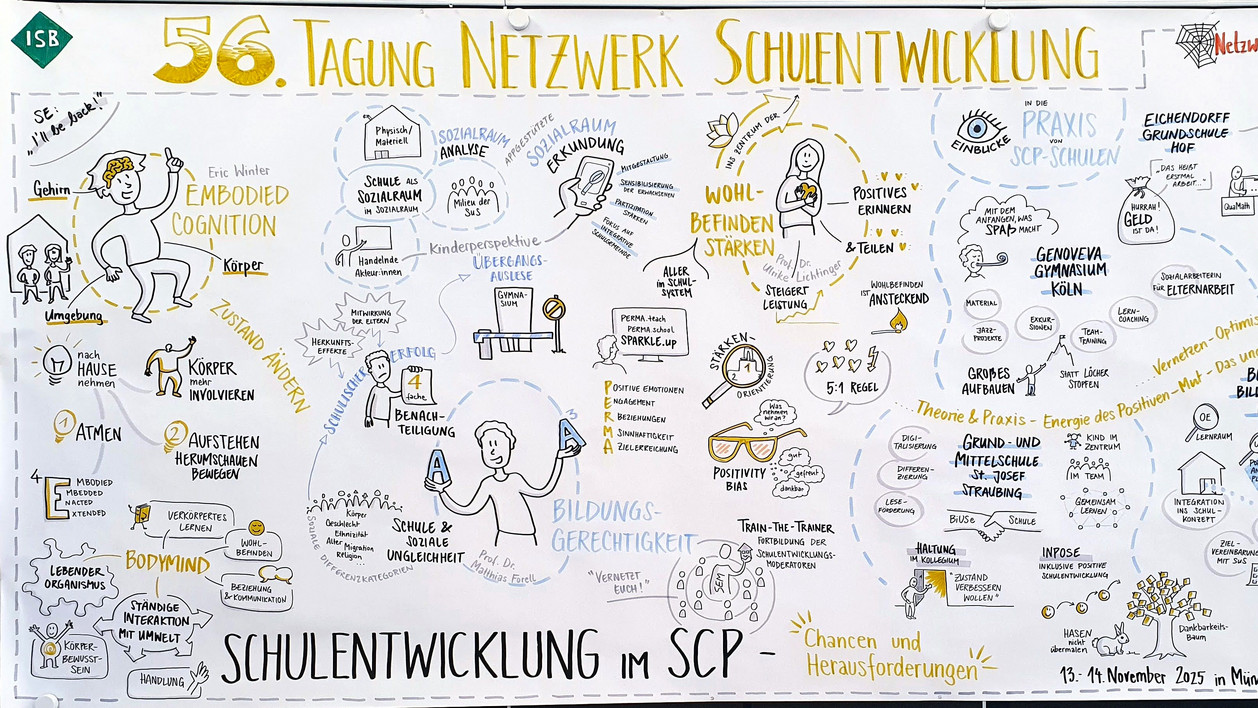 ISB
56. TAGUNG NETZWERK SCHULENTWICKLUNG
Netzw
SE:
"I'll be back!"
Gehirn
Eric Winter
EMBODIED
COGNITION
Körper
Umgebung
ZUSTAND ÄNDERN
nach
HAUSE
nehmen
KÖRPER
mehr
INVOLVIEREN
1 ATMEN
2 AUFSTEHEN
HERUMSCHAUEN
BEWEGEN
4E
EMBODIED
EMBEDDED
ENACTED
EXTENDED
VERKÖRPERTES
LERNEN
WOHL-
BEFINDEN
BODYMIND
BEZIEHUNG
& KOMMUNIKATION
LEBENDER
ORGANISMUS
STÄNDIGE
INTERAKTION
MIT UMWELT
KÖRPER-
BEWUSST-
SEIN
HANDLUNG
Physisch/
Materiell
SOZIALRAUM
ANALYSE
SCHULE ALS
SOZIALRAUM
IM SOZIALRAUM
Milieu der
SuS
Handelnde
Akteur:innen
APPGESTÜTZTE
SOZIALRAUM
ERKUNDUNG
MITGESTALTUNG
SENSIBILISIERUNG
DER ERWACHSENEN
PARTIZIPATION
STÄRKEN
FOKUS AUF
INTEGRATIVE
SCHULGEMEINDE
Kinderperspektive
ÜBERGANGS-
AUSLESE
GYMNA-
SIUM
MITWIRKUNG
DER ELTERN
HERKUNFTS-
EFFEKTE
SCHULISCHER ERFOLG
4
fache
BENACH-
TEILIGUNG
A
A
BILDUNGS-
GERECHTIGKEIT
Körper
Geschlecht
Ethnizität
Alter Migration
Religion
SOZIALE DIFFERENZKATEGORIEN
SCHULE &
SOZIALE
UNGLEICHHEIT
Prof. Dr.
Matthias Forell
INS ZENTRUM DER
WOHL-
BEFINDEN
STÄRKEN
POSITIVES
ERINNERN
& TEILEN
Prof. Dr.
Ulrike Lichtinger
ALLER
IM SCHUL-
SYSTEM
STEIGERT
LEISTUNG
WOHLBEFINDEN
IST ANSTECKEND
PERMA.teach
PERMA.school
SPARKLE.up
POSITIVE EMOTIONEN
ENGAGEMENT
BEZIEHUNGEN
SINNHAFTIGKEIT
ZIELERREICHUNG
P
E
R
M
A
STÄRKEN-
ORIENTIERUNG
5:1 REGEL
Was
nehmen
wir an?
gut
gefreut
dankbar
POSITIVITY
BIAS
TRAIN-THE-TRAINER
FORTBILDUNG DER
SCHULENTWICKLUNGS-
MODERATOREN
SEM
"VERNETZT
EUCH!"
EINBLICKE
IN DIE
PRAXIS
VON
SCP-SCHULEN
EICHENDORFF
GRUNDSCHULE
HOF
"DAS HEIßT
ERSTMAL
ARBEIT..."
HURRAH!
GELD
IST DA!
QuaMath
MIT DEM
ANFANGEN, WAS
SPAß MACHT
GENOVEVA
GYMNASIUM
KÖLN
SOZIALARBEITERIN
FÜR ELTERNARBEIT
MATERIAL
JAZZ-
PROJEKTE
EXKUR-
SIONEN
TEAM-
TRAINING
LERN-
COACHING
GROßES
AUFBAUEN
STATT LÖCHER
STOPFEN
...Theorie & Praxis - Energie des Positiven - Mut - Das und
...Vernetzen - Optimis
DIGI-
TALISIERUNG
DIFFEREN-
ZIERUNG
LESE-
FÖRDERUNG
GRUND- UND
MITTELSCHULE
ST. JOSEF
STRAUBING
KIND IM
ZENTRUM
IM TEAM
GEMEINSAM
LERNEN
BiUSe
SCHULE
OE
LERNRAUM
INTEGRATION
INS SCHUL-
KONZEPT
ZIEL-
VEREINBARUNG
MIT SUS
HALTUNG
IM KOLLEGIUM
"ZUSTAND
VERBESSERN
WOLLEN"
INPOSE
INKLUSIVE POSITIVE
SCHULENTWICKLUNG
HASEN
nicht
übermalen
Dankbarkeits-
Baum
SCHULENTWICKLUNG IM SCP -
Chancen und
Herausforderungen
13.- 14. November 2025 in Mün